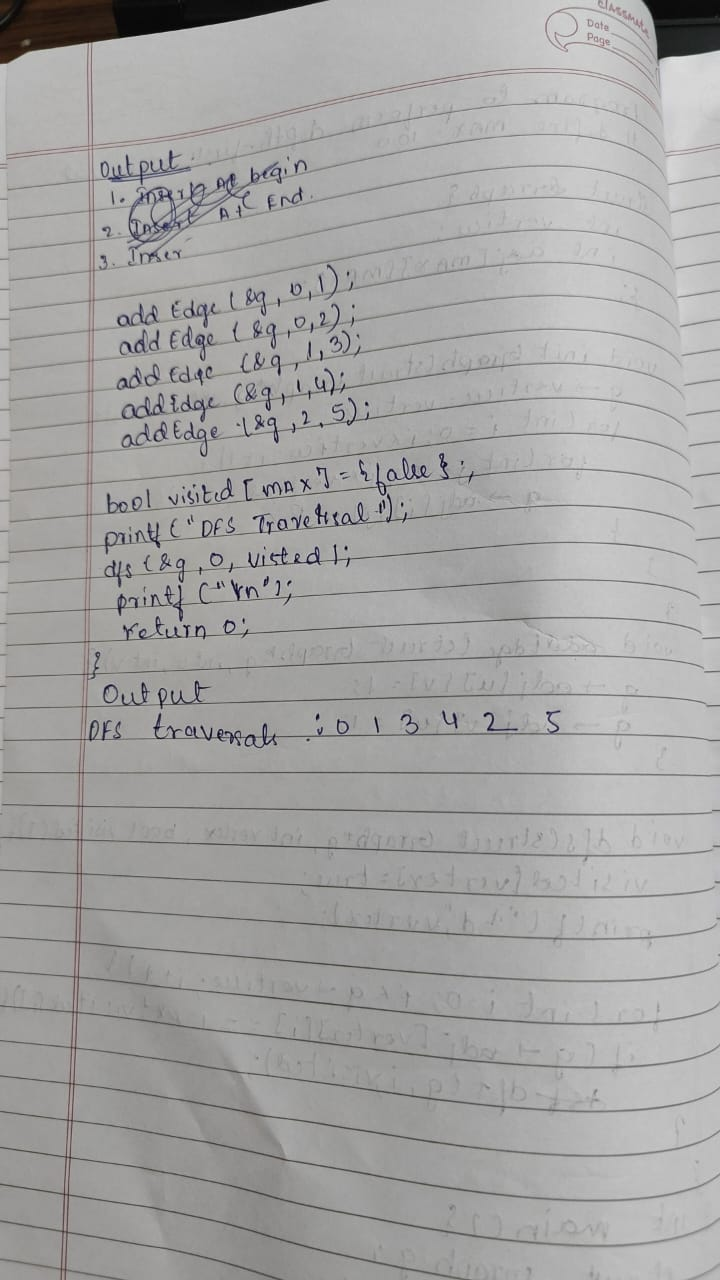 classmate
Date
Page
Output
1. Insert At begin
2. Insert At End.
3. Inser
add Edge (&g, 0, 1);
add Edge (&g, 0, 2);
add Edge (&g, 1, 3);
add Edge (&g, 1, 4);
add Edge (&g, 2, 5);
bool visited [MAX] = {false};
printf ("DFS Traversal");
dfs (&g, 0, visted);
printf ("\n");
return 0;
}
Output
DFS traversals : 0 1 3 4 2 5